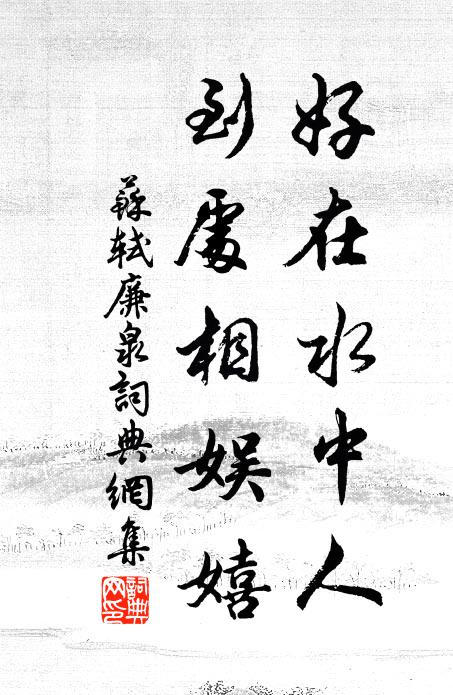 好在水中人
到處相娛嬉
蘇軾廉泉詞典網集
詞典網印